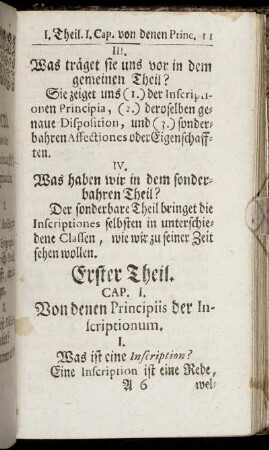 I. Theil. I. Cap. von denen Princ. 11
III.
Was träget sie uns vor in dem
gemeinen Theil?
Sie zeiget uns (1.) der Inscripti-
onen Principia, (2.) deroselben ge-
naue Disposition, und (3.) sonder-
bahren Affectiones oder Eigenschaff-
ten.
IV.
Was haben wir in dem sonder-
bahren Theil?
Der sonderbare Theil bringet die
Inscriptiones selbsten in unterschie-
dene Classen, wie wir zu seiner Zeit
sehen wollen.
Erster Theil.
CAP. I.
Von denen Principiis der In-
scriptionum.
I.
Was ist eine Inscription?
Eine Inscription ist eine Rede,
A 6 wel-